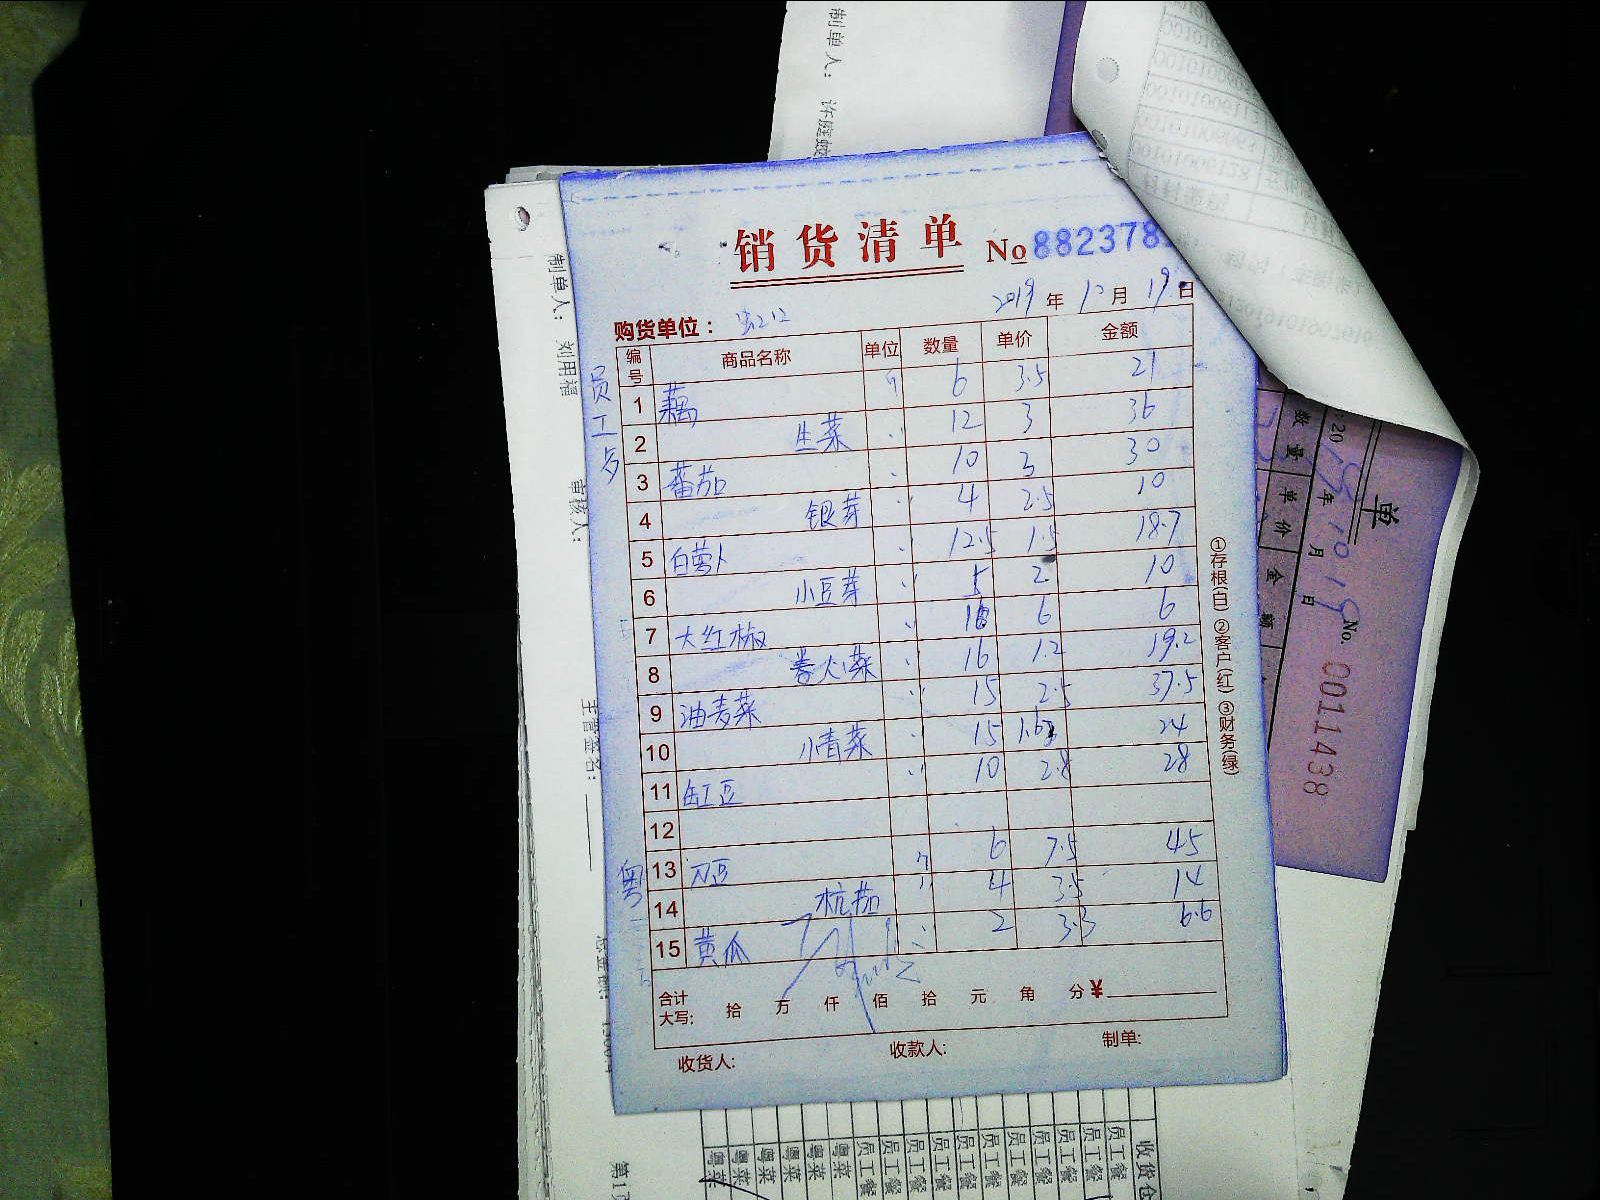 制单人:
销货清单 No 882378
2019 年 10 月 19 日
购货单位:
编号 商品名称 单位 数量 单价 金额
1 藕 6 3.5 21
2 生菜 〃 12 3 36
3 蕃茄 〃 10 3 30
4 银芽 〃 4 2.5 10
5 白萝卜 〃 12.5 1.5 18.7
6 小豆芽 〃 5 2 10
7 大红椒 〃 6 6
8 卷心菜 〃 16 1.2 19.2
9 油麦菜 〃 15 2.5 37.5
10 小青菜 〃 15 1.6 24
11 缸豆 〃 10 2.8 28
12
13 刀豆 6 7.5 45
14 杭茄 〃 4 3.5 14
15 黄瓜 〃 2 3.3 6.6
合计大写: 拾 万 仟 佰 拾 元 角 分 ¥
收货人: 收款人: 制单:
员工
粤
①存根(白) ②客户(红) ③财务(绿)
制单人:
审核人:
主管签名:
单
年 10 月 19 日
数量 单价 金额
No. 0011438
收货仓
员工餐 员工餐 员工餐 员工餐 员工餐 员工餐 员工餐 员工餐 员工餐 员工餐
粤菜 粤菜 粤菜 粤菜 粤菜 粤菜
第1页